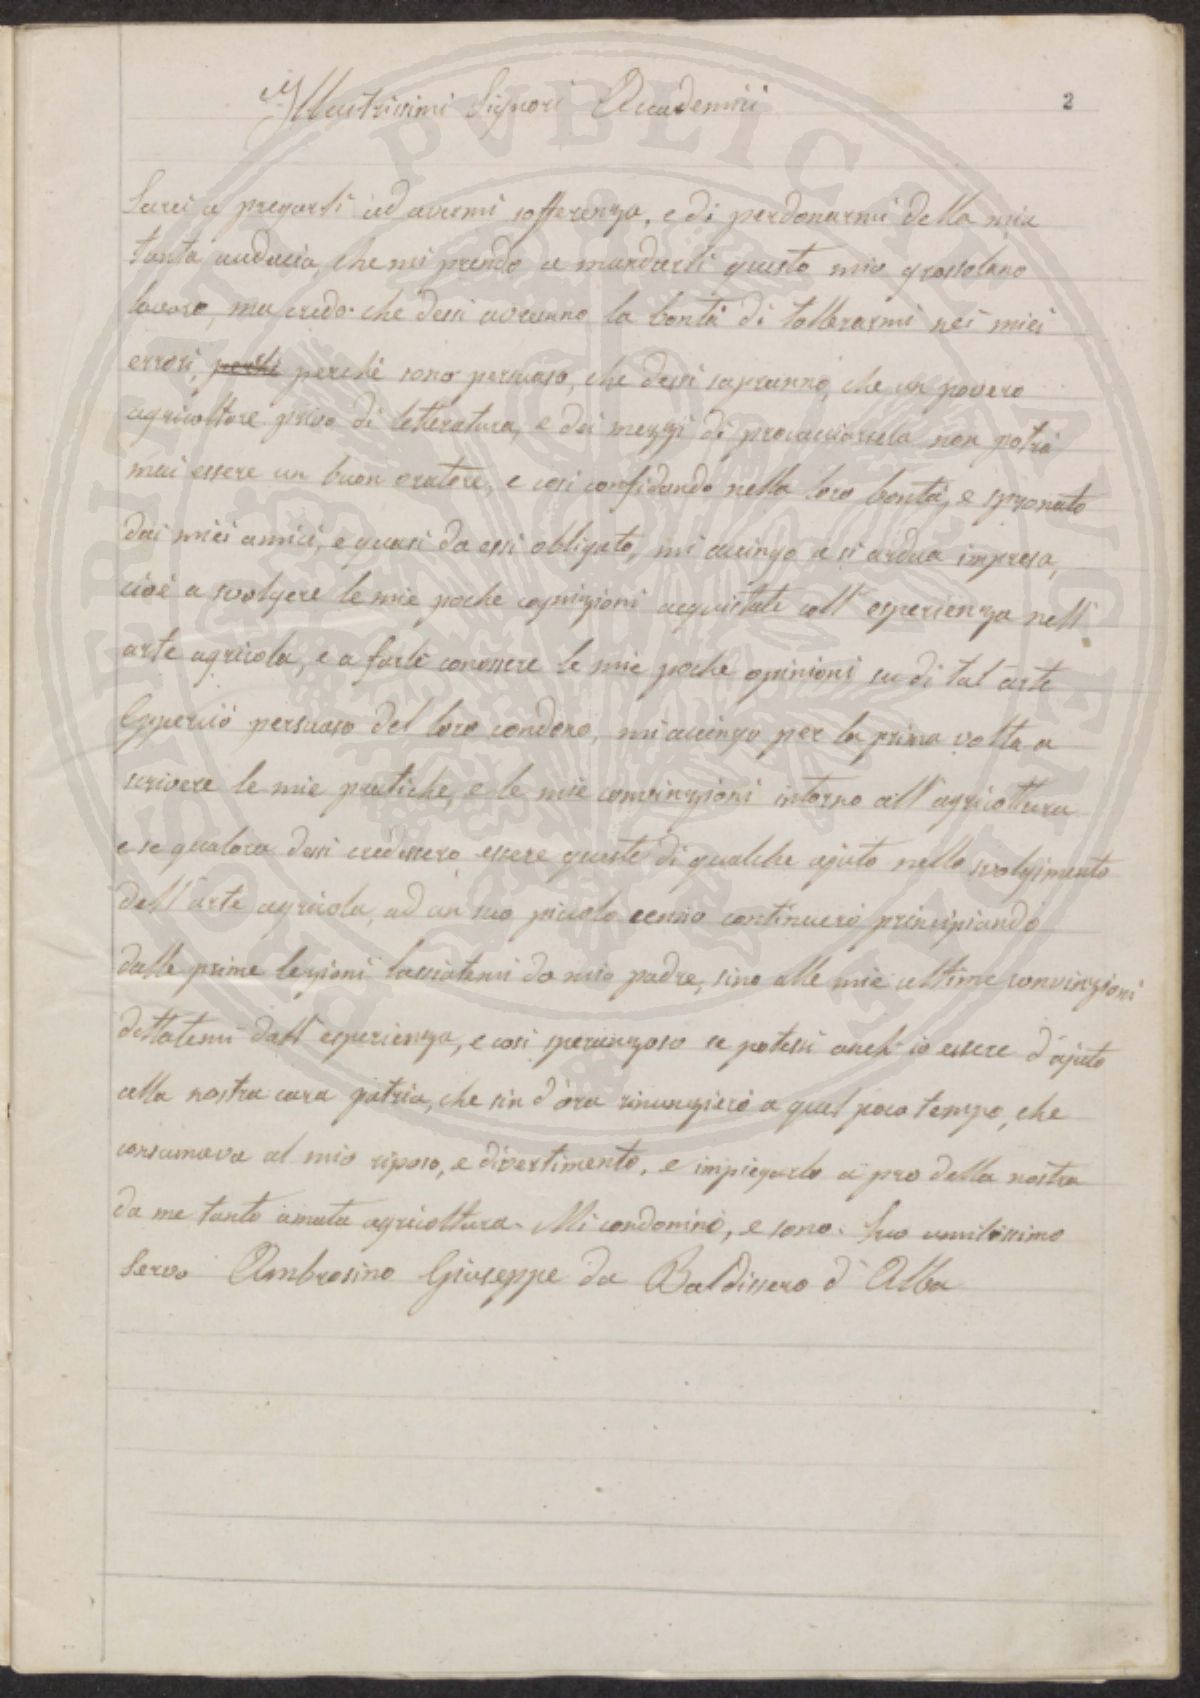 Illustrissimi Signori Accademici
2
Sarei a pregarli ad avermi sofferenza, e di perdonarmi della mia
tanta audacia, che mi prendo a mandarli questo mio grossolano
lavoro, ma credo che dessi avranno la bontà di tollerarmi nei miei
errori, perchè perchè sono persuaso, che dessi sapranno, che un povero
agricoltore privo di letteratura, e dei mezzi di procacciarsela non potrà
mai essere un buon oratore, e così confidando nella loro bontà, e spronato
dai miei amici, e quasi da essi obligato, mi accingo a sì ardua impresa,
cioè a svolgere le mie poche cognizioni acquistate coll' esperienza nell'
arte agricola, e a farle conoscere le mie poche opinioni su di tal arte
Epperciò persuaso del loro condono, mi accingo per la prima volta a
scrivere le mie pratiche, e le mie convinzioni intorno all' agricoltura
e se qualora dessi credessero essere queste di qualche ajuto nello svolgimento
dell' arte agricola, ad un suo piccolo cenno continuerò principiando
dalle prime lezioni lasciatemi da mio padre, sino alle mie ultime convinzioni
dettatemi dall' esperienza, e così speranzoso se potessi anch' io essere d' ajuto
alla nostra cara patria, che sin d' ora rinunzierò a quel poco tempo, che
consumava al mio riposo, e divertimento, e impiegarlo a pro della nostra
da me tanto amata agricoltura. Mi condonino, e sono. Suo umilissimo
Servo Ambrosino Giuseppe da Baldissero d' Alba
PVBLICAE